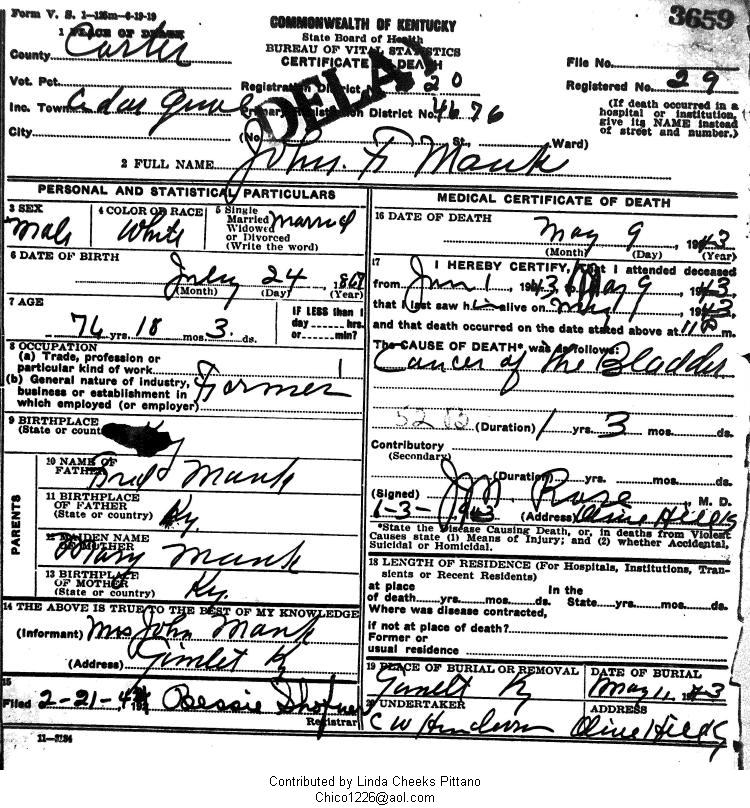 Form V. S. 1-125m-6-19-19
3659
COMMONWEALTH OF KENTUCKY
State Board of Health
BUREAU OF VITAL STATISTICS
CERTIFICATE OF DEATH
1 PLACE OF DEATH
County Carter
File No.
Vot. Pct.
Registration District 20
Registered No. 29
DELAY
Inc. Town
Primary Registration District No. 4676
(If death occurred in a hospital or institution, give its NAME instead of street and number.)
City
(No. St., Ward)
2 FULL NAME John. F. Mauk
PERSONAL AND STATISTICAL PARTICULARS
3 SEX Male
4 COLOR OR RACE White
5 Single Married Widowed or Divorced (Write the word) Married
6 DATE OF BIRTH
July 24, 1867
(Month) (Day) (Year)
7 AGE
74 yrs. 18 mos. 3 ds.
IF LESS than 1 day hrs. or min.?
8 OCCUPATION
(a) Trade, profession or particular kind of work
(b) General nature of industry, business or establishment in which employed (or employer) Farmer
9 BIRTHPLACE
(State or country)
PARENTS
10 NAME OF FATHER Mauk
11 BIRTHPLACE OF FATHER (State or country) Ky.
12 MAIDEN NAME OF MOTHER Mary Mauk
13 BIRTHPLACE OF MOTHER (State or country) Ky.
14 THE ABOVE IS TRUE TO THE BEST OF MY KNOWLEDGE
(Informant) Mrs John Mauk
(Address) Gimlet Ky
15
Filed 2-21-44, 19 Bessie Shofner
Registrar
11-3184
MEDICAL CERTIFICATE OF DEATH
16 DATE OF DEATH
May 9, 1943
(Month) (Day) (Year)
17 I HEREBY CERTIFY, That I attended deceased
from Jun 1, 1943, to May 9, 1943,
that I last saw him alive on May 9, 1943,
and that death occurred on the date stated above at 11 m.
The CAUSE OF DEATH*, was as follows:
Cancer of the Bladder
(Duration) 1 yrs. 3 mos. ds.
Contributory
(Secondary)
(Duration) yrs. mos. ds.
(Signed) J.M. Rose, M. D.
1-3-1943 (Address) Olive Hill Ky
*State the Disease Causing Death, or, in deaths from Violent Causes state (1) Means of Injury; and (2) whether Accidental, Suicidal or Homicidal.
18 LENGTH OF RESIDENCE (For Hospitals, Institutions, Transients or Recent Residents)
at place In the
of death yrs. mos. ds. State yrs. mos. ds.
Where was disease contracted,
if not at place of death?
Former or
usual residence
19 PLACE OF BURIAL OR REMOVAL
Ky
DATE OF BURIAL
May 11, 1943
20 UNDERTAKER
C W Henderson
ADDRESS
Olive Hill Ky
Contributed by Linda Cheeks Pittano
Chico1226@aol.com